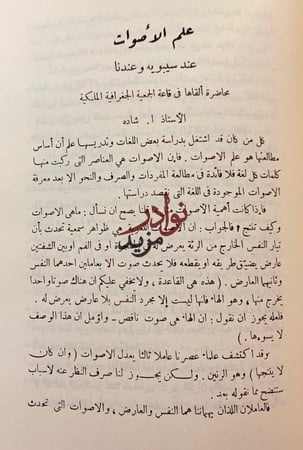 علم الأصوات
عند سيبويه وعندنا
محاضرة ألقاها فى قاعة الجمعية الجغرافية الملكية
الأستاذ ا. شاده
كل من كان قد اشتغل بدراسة بعض اللغات وتدريسها علم أن أساس
مطالعتها هو علم الاصوات. فإن الاصوات هى العناصر التى ركبت منها
كلمات كل لغة فلا فائدة فى مطالعة المفردات والصرف والنحو الا بعد معرفة
الاصوات الموجودة فى اللغة التى نقصد دراستها.
فإذا كانت أهمية الاصوات فلنا يصح ان نسأل: ماهى الاصوات
وكيف تنتج؟ فالجواب: إن الاصوات هى ظواهر سمعية تحدث بأن
تيار النفس الخارج من الرئة يعرض او فى الفم اوبين الشفتين
عارض يضيق طريقه او يقطعه فلا يحدث صوت الا بعاملين احدهما النفس
وثانيهما العارض. (هذه هى القاعدة، ولا يخفى عليكم ان هناك صوتا واحدا
يخرج منها، وهو الهاء فانها ليست إلا مجرد النفس بلا عارض يعارض له.
فلعله يجوز ان نقول: ان الهاء هى صوت ناقص - وأؤمل ان هذا الوصف
لا يسوءها).
وقد اكتشف علماء عصرنا عاملا ثالثا يعدل الاصوات (وان كان
لا ينتجها) وهو الرنين. ولكن يجوز لنا صرف النظر عنه لأسباب
ستتضح مما نقوله بعد.
فالعاملان اللذان يهماننا هما النفس والعارض، والاصوات التى تحدث
نوادر
مزيد